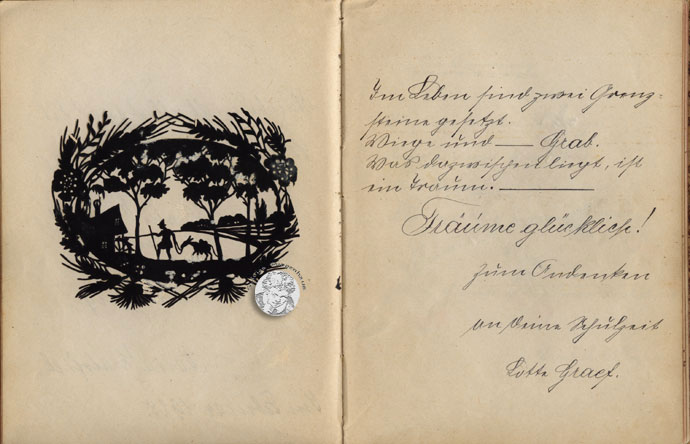 Im Leben sind zwei Grenz-
steine gesetzt.
Wiege und — Grab.
Was dazwischen liegt, ist
ein Traum. ———
Träume glücklich!
Zum Andenken
an Deine Schulzeit
Lotte Graef.